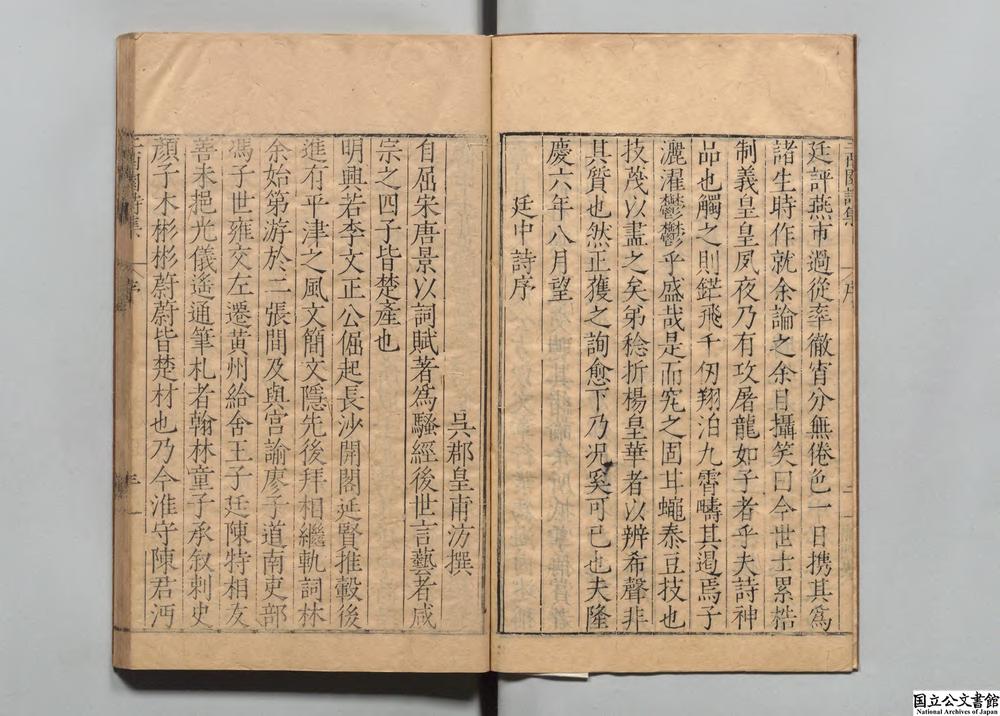 廷評燕市過從率徹宵分無倦色一日携其爲
諸生時作就余論之余目攝笑曰今世士累楛
制義皇皇夙夜乃有攻屠龍如子者乎夫詩神
品也觸之則鋩飛千仞翔泊九霄疇其遏焉子
灑濯鬱鬱乎盛哉是而究之固耳蠅桼豆技也
技茂以盡之矣弟稔折楊皇華者以辨希聲非
其質也然正獲之詢愈下乃況奚可已也夫隆
慶六年八月望
廷中詩序
吳郡皇甫汸撰
自屈宋唐景以詞賦著爲騷經後世言藝者咸
宗之四子皆楚產也
明興若李文正公倔起長沙開閣延賢推轂後
進有平津之風文簡文隱先後拜相繼軌詞林
余始第游於二張間及與宫諭廖子道南吏部
馮子世雍交左遷黃州給舍王子廷陳特相友
善未挹光儀遙通筆札者翰林童子承叙刺史
顏子木彬彬蔚蔚皆楚材也乃今淮守陳君沔
序
序
国立公文書館
National Archives of Japan